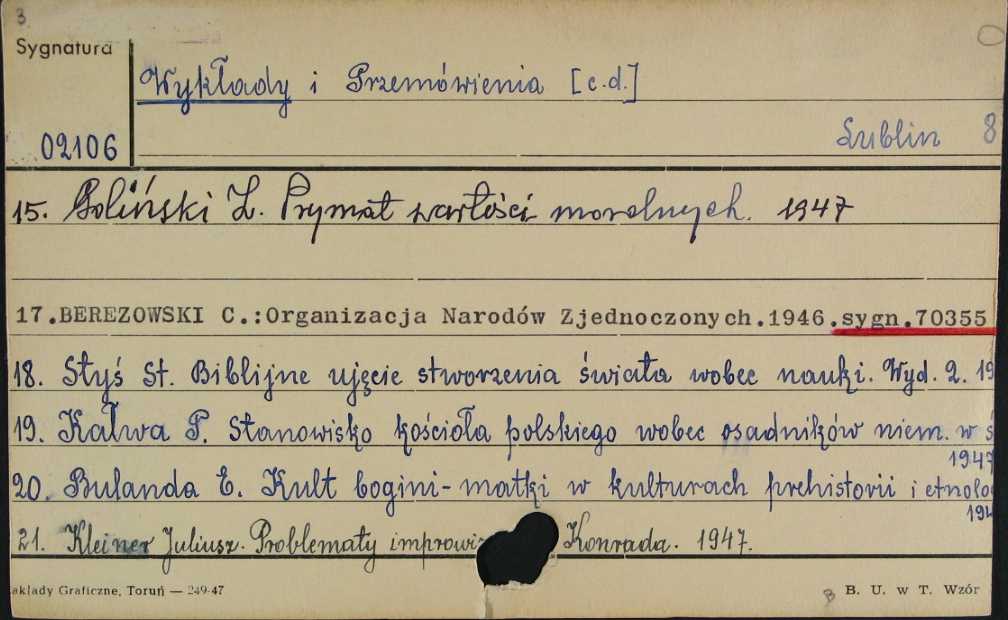 3
Sygnatura
Wykłady i Przemówienia [c.d.]
02106
Lublin 8
15. Goliński Z. Prymat wartości moralnych. 1947
17.BEREZOWSKI C.:Organizacja Narodów Zjednoczonych.1946.sygn.70355
18. Styś St. Biblijne ujęcie stworzenia świata wobec nauki. Wyd. 2. 19
19. Kałwa P. Stanowisko kościoła polskiego wobec osadników niem. w ś
1947
20. Bulanda E. Kult bogini-matki w kulturach prehistorii i etnolo
194
21. Kleiner Juliusz. Problematy improwiz Konrada. 1947.
akłady Graficzne, Toruń — 249-47
B B. U. w T. Wzór